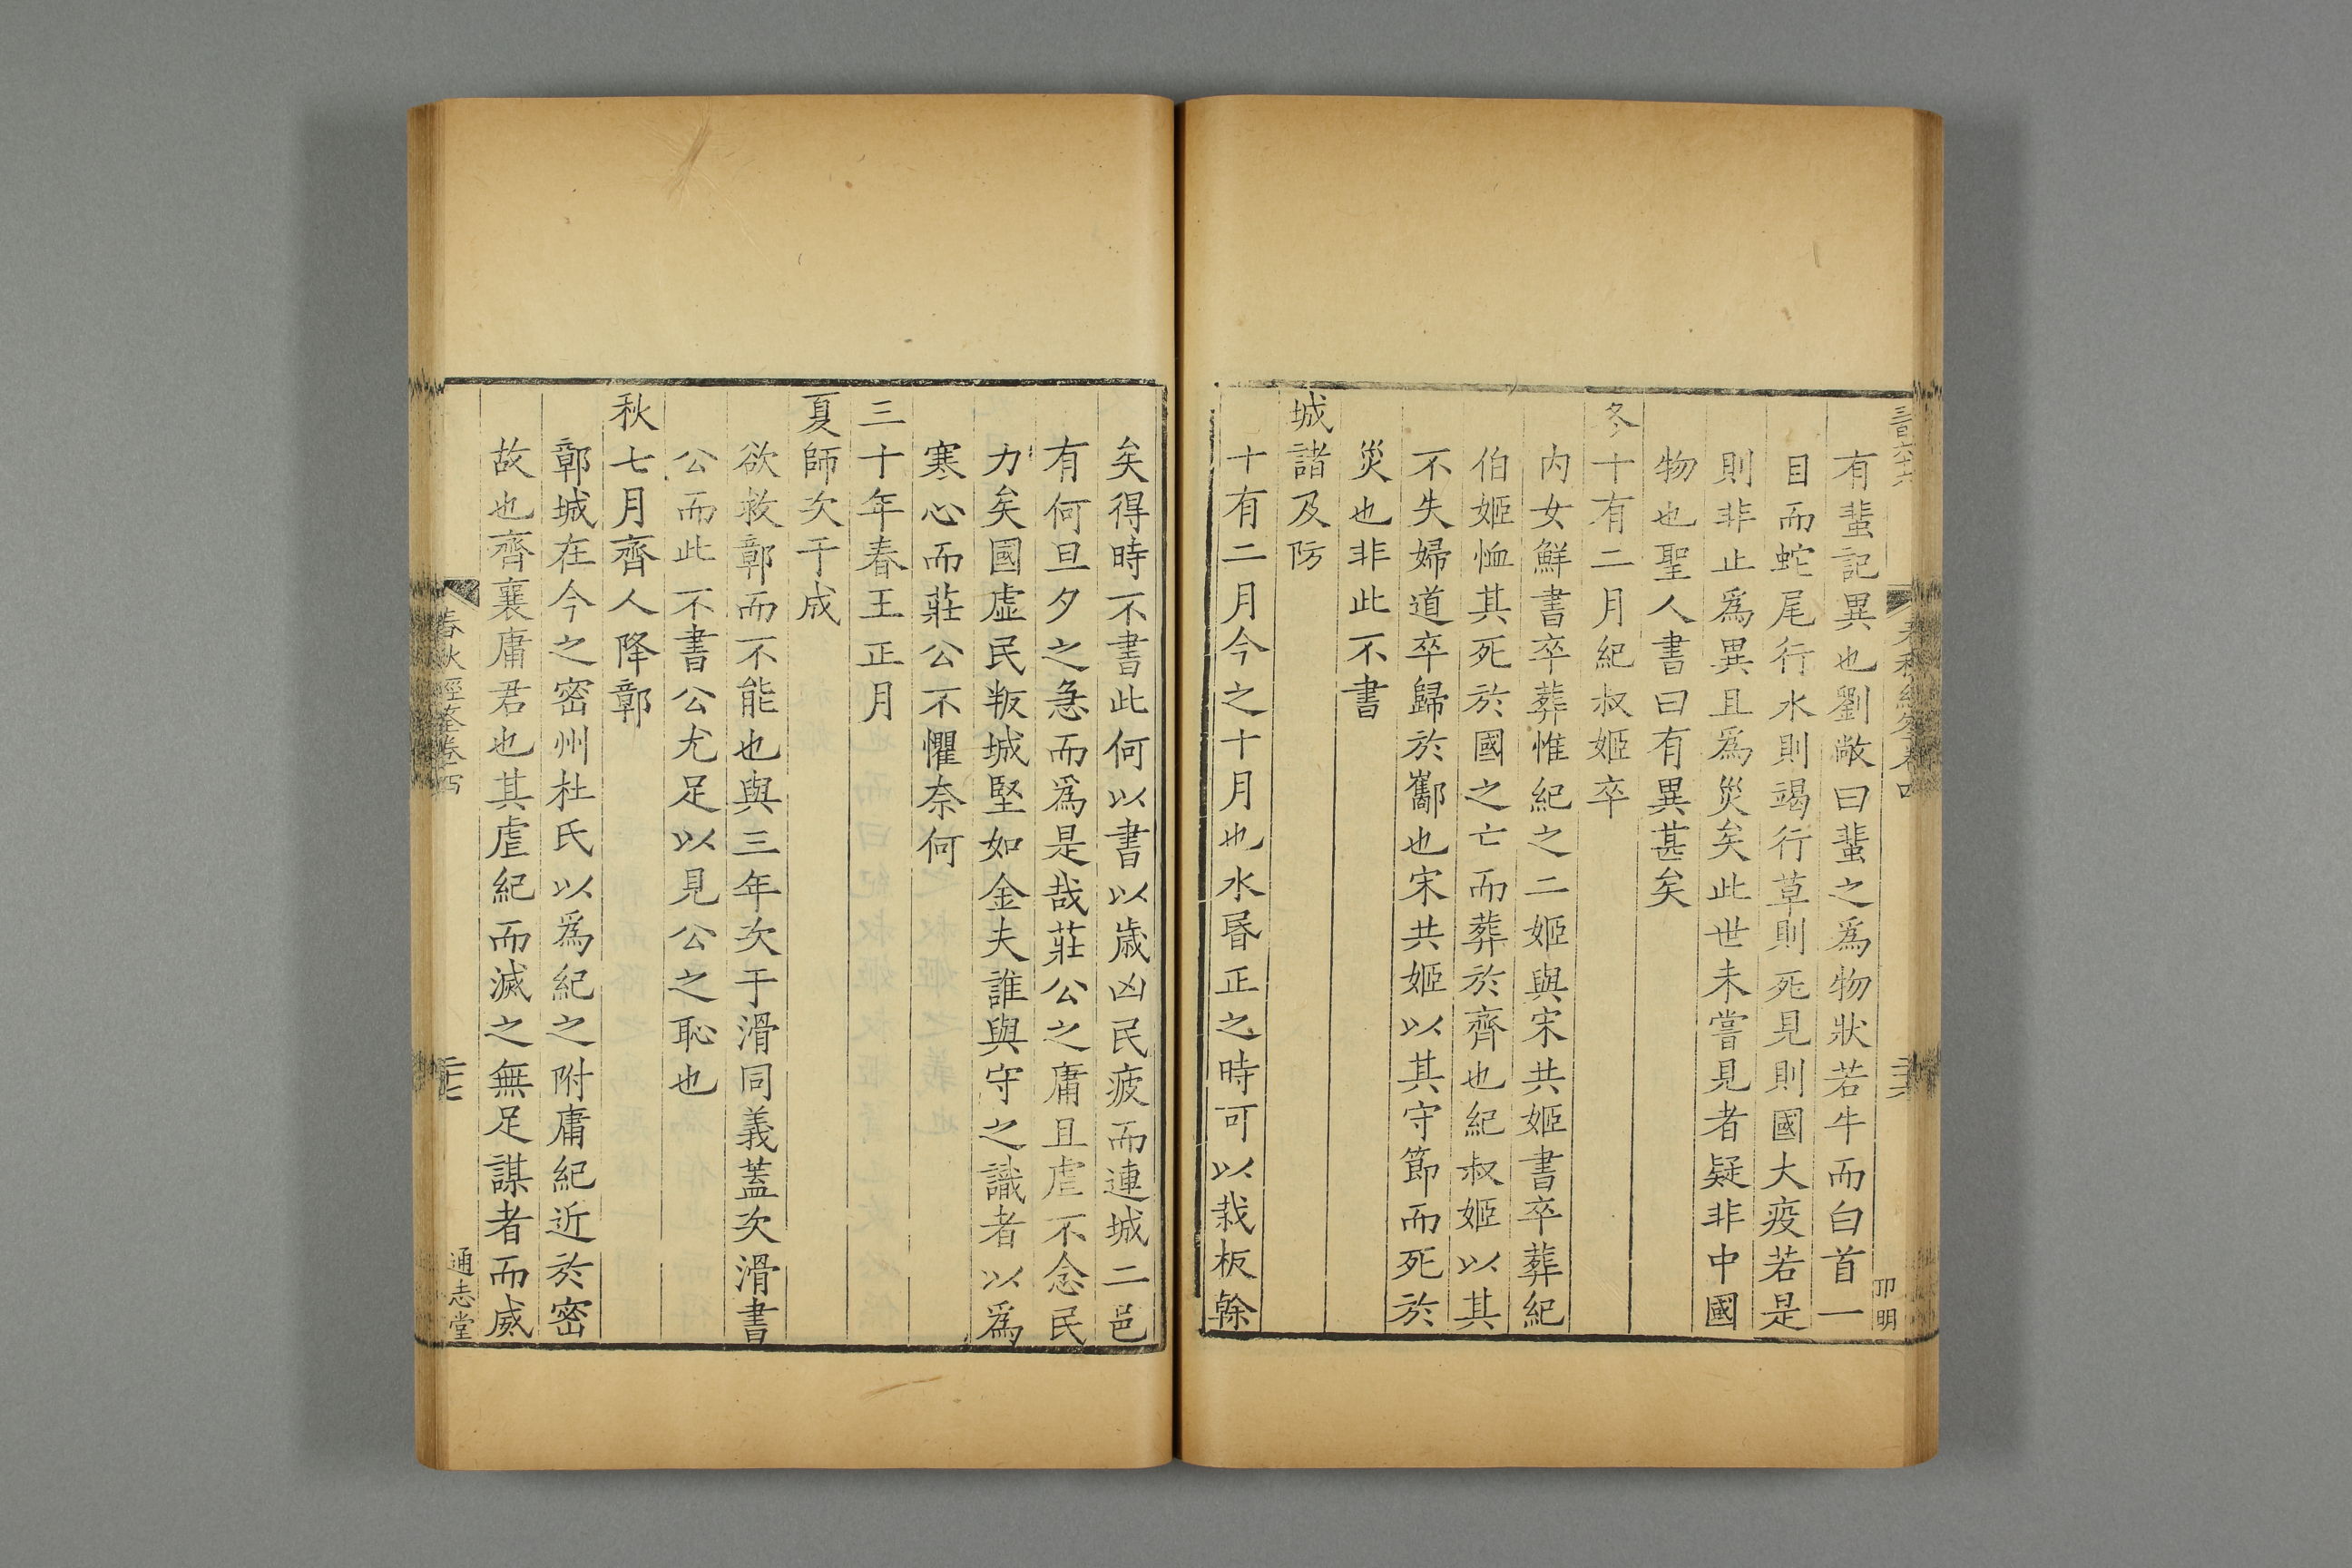 有蜚記異也劉敞曰蜚之爲物狀若牛而白首一
目而蛇尾行水則竭行草則死見則國大疫若是
則非止爲異且爲災矣此世未嘗見者疑非中國
物也聖人書曰有異甚矣
冬十有二月紀叔姬卒
内女鮮書卒葬惟紀之二姬與宋共姬書卒葬紀
伯姬恤其死於國之亡而葬於齊也紀叔姬以其
不失婦道卒歸於酅也宋共姬以其守節而死於
災也非此不書
城諸及防
十有二月今之十月也水昬正之時可以栽板榦
矣得時不書此何以書以歳凶民疲而連城二邑
有何旦夕之急而爲是哉莊公之庸且虐不念民
力矣國虛民叛城堅如金夫誰與守之識者以爲
寒心而莊公不懼奈何
三十年春王正月
夏師次于成
欲救鄣而不能也與三年次于滑同義蓋次滑書
公而此不書公尤足以見公之恥也
秋七月齊人降鄣
鄣城在今之密州杜氏以爲紀之附庸紀近於密
故也齊襄庸君也其虐紀而滅之無足謀者而威
春秋經筌卷四
二十七
通志堂